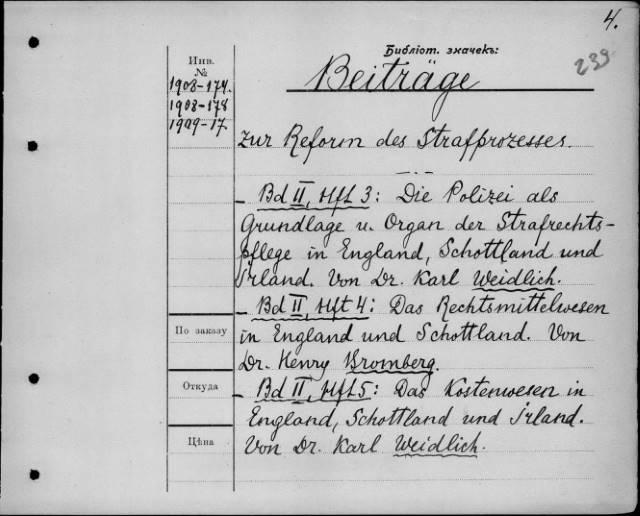 4.
239
Библіот. значекъ:
Инв.
№
1908-174.
1908-178
1909-17.
Beiträge
zur Reform des Strafprozesses.
- Bd II, Hft 3: Die Polizei als
Grundlage u. Organ der Strafrechts-
pflege in England, Schottland und
Irland. Von Dr. Karl Weidlich.
- Bd II, Hft 4: Das Rechtsmittelwesen
in England und Schottland. Von
Dr. Henry Bromberg.
- Bd II, Hft 5: Das Kostenwesen in
England, Schottland und Irland.
Von Dr. Karl Weidlich.
По заказу
Откуда
Цѣна